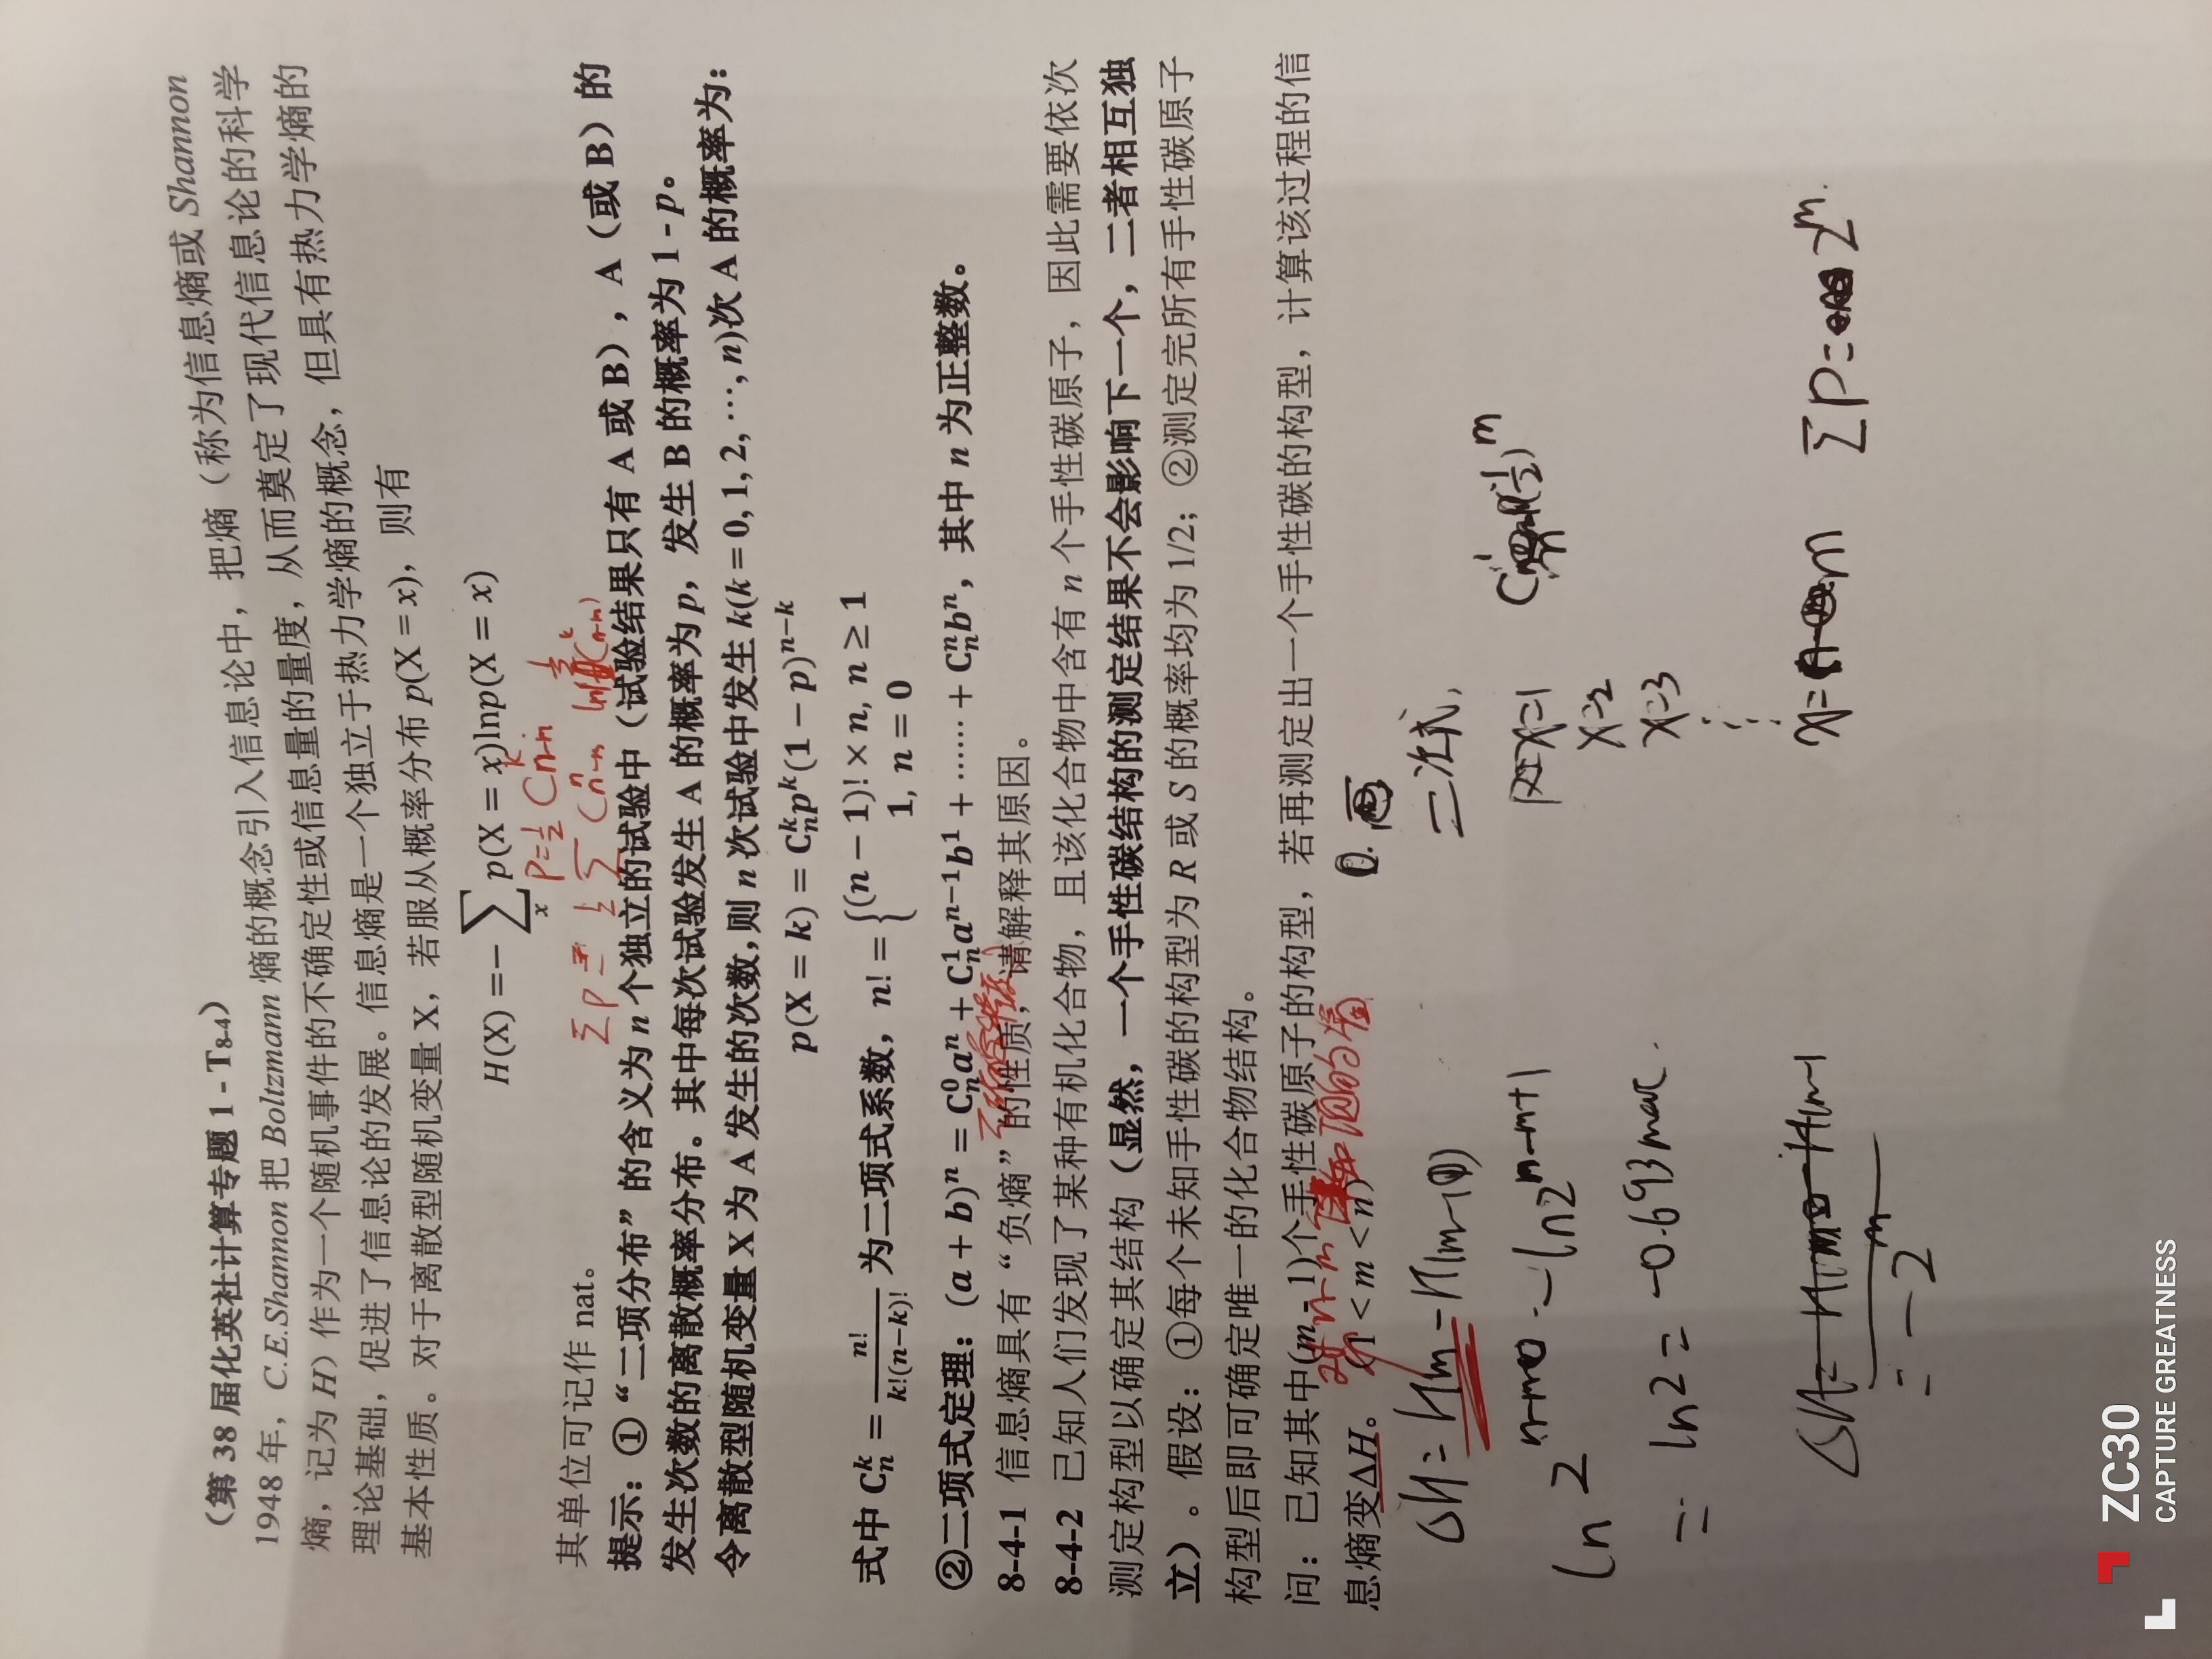 （第 38 届化英社计算专题 1 - T8-4）
1948 年，C.E.Shannon 把 Boltzmann 熵的概念引入信息论中，把熵（称为信息熵或 Shannon
熵，记为 H）作为一个随机事件的不确定性或信息量的量度，从而奠定了现代信息论的科学
理论基础，促进了信息论的发展。信息熵是一个独立于热力学熵的概念，但具有热力学熵的
基本性质。对于离散型随机变量 X，若服从概率分布 p(X = x)，则有
H(X) = − ∑x p(X = x)lnp(X = x)
其单位可记作 nat。
提示：①“二项分布”的含义为 n 个独立的试验中（试验结果只有 A 或 B），A（或 B）的
发生次数的离散概率分布。其中每次试验发生 A 的概率为 p，发生 B 的概率为 1 - p。
令离散型随机变量 X 为 A 发生的次数，则 n 次试验中发生 k(k = 0, 1, 2, ⋯, n)次 A 的概率为：
p(X = k) = C_n^k p^k (1 − p)^{n−k}
式中 C_n^k = n!/k!(n−k)! 为二项式系数，n! = {(n − 1)! × n, n ≥ 1
1, n = 0
②二项式定理：(a + b)^n = C_n^0 a^n + C_n^1 a^{n−1}b^1 + …… + C_n^n b^n，其中 n 为正整数。
8-4-1 信息熵具有“负熵”的性质，请解释其原因。
8-4-2 已知人们发现了某种有机化合物，且该化合物中含有 n 个手性碳原子，因此需要依次
测定构型以确定其结构（显然，一个手性碳结构的测定结果不会影响下一个，二者相互独
立）。假设：①每个未知手性碳的构型为 R 或 S 的概率均为 1/2；②测定完所有手性碳原子
构型后即可确定唯一的化合物结构。
问：已知其中(m-1)个手性碳原子的构型，若再测定出一个手性碳的构型，计算该过程的信
息熵变ΔH。 (1 < m < n)
ΔH = Hm − H(m-1)
二次式,
ln 2 − ln2^{n-m+1}
= ln2 = −0.693
X=1
X=2
X=3
ΣP = 2^m.
= − 2^m
ZC30
CAPTURE GREATNESS